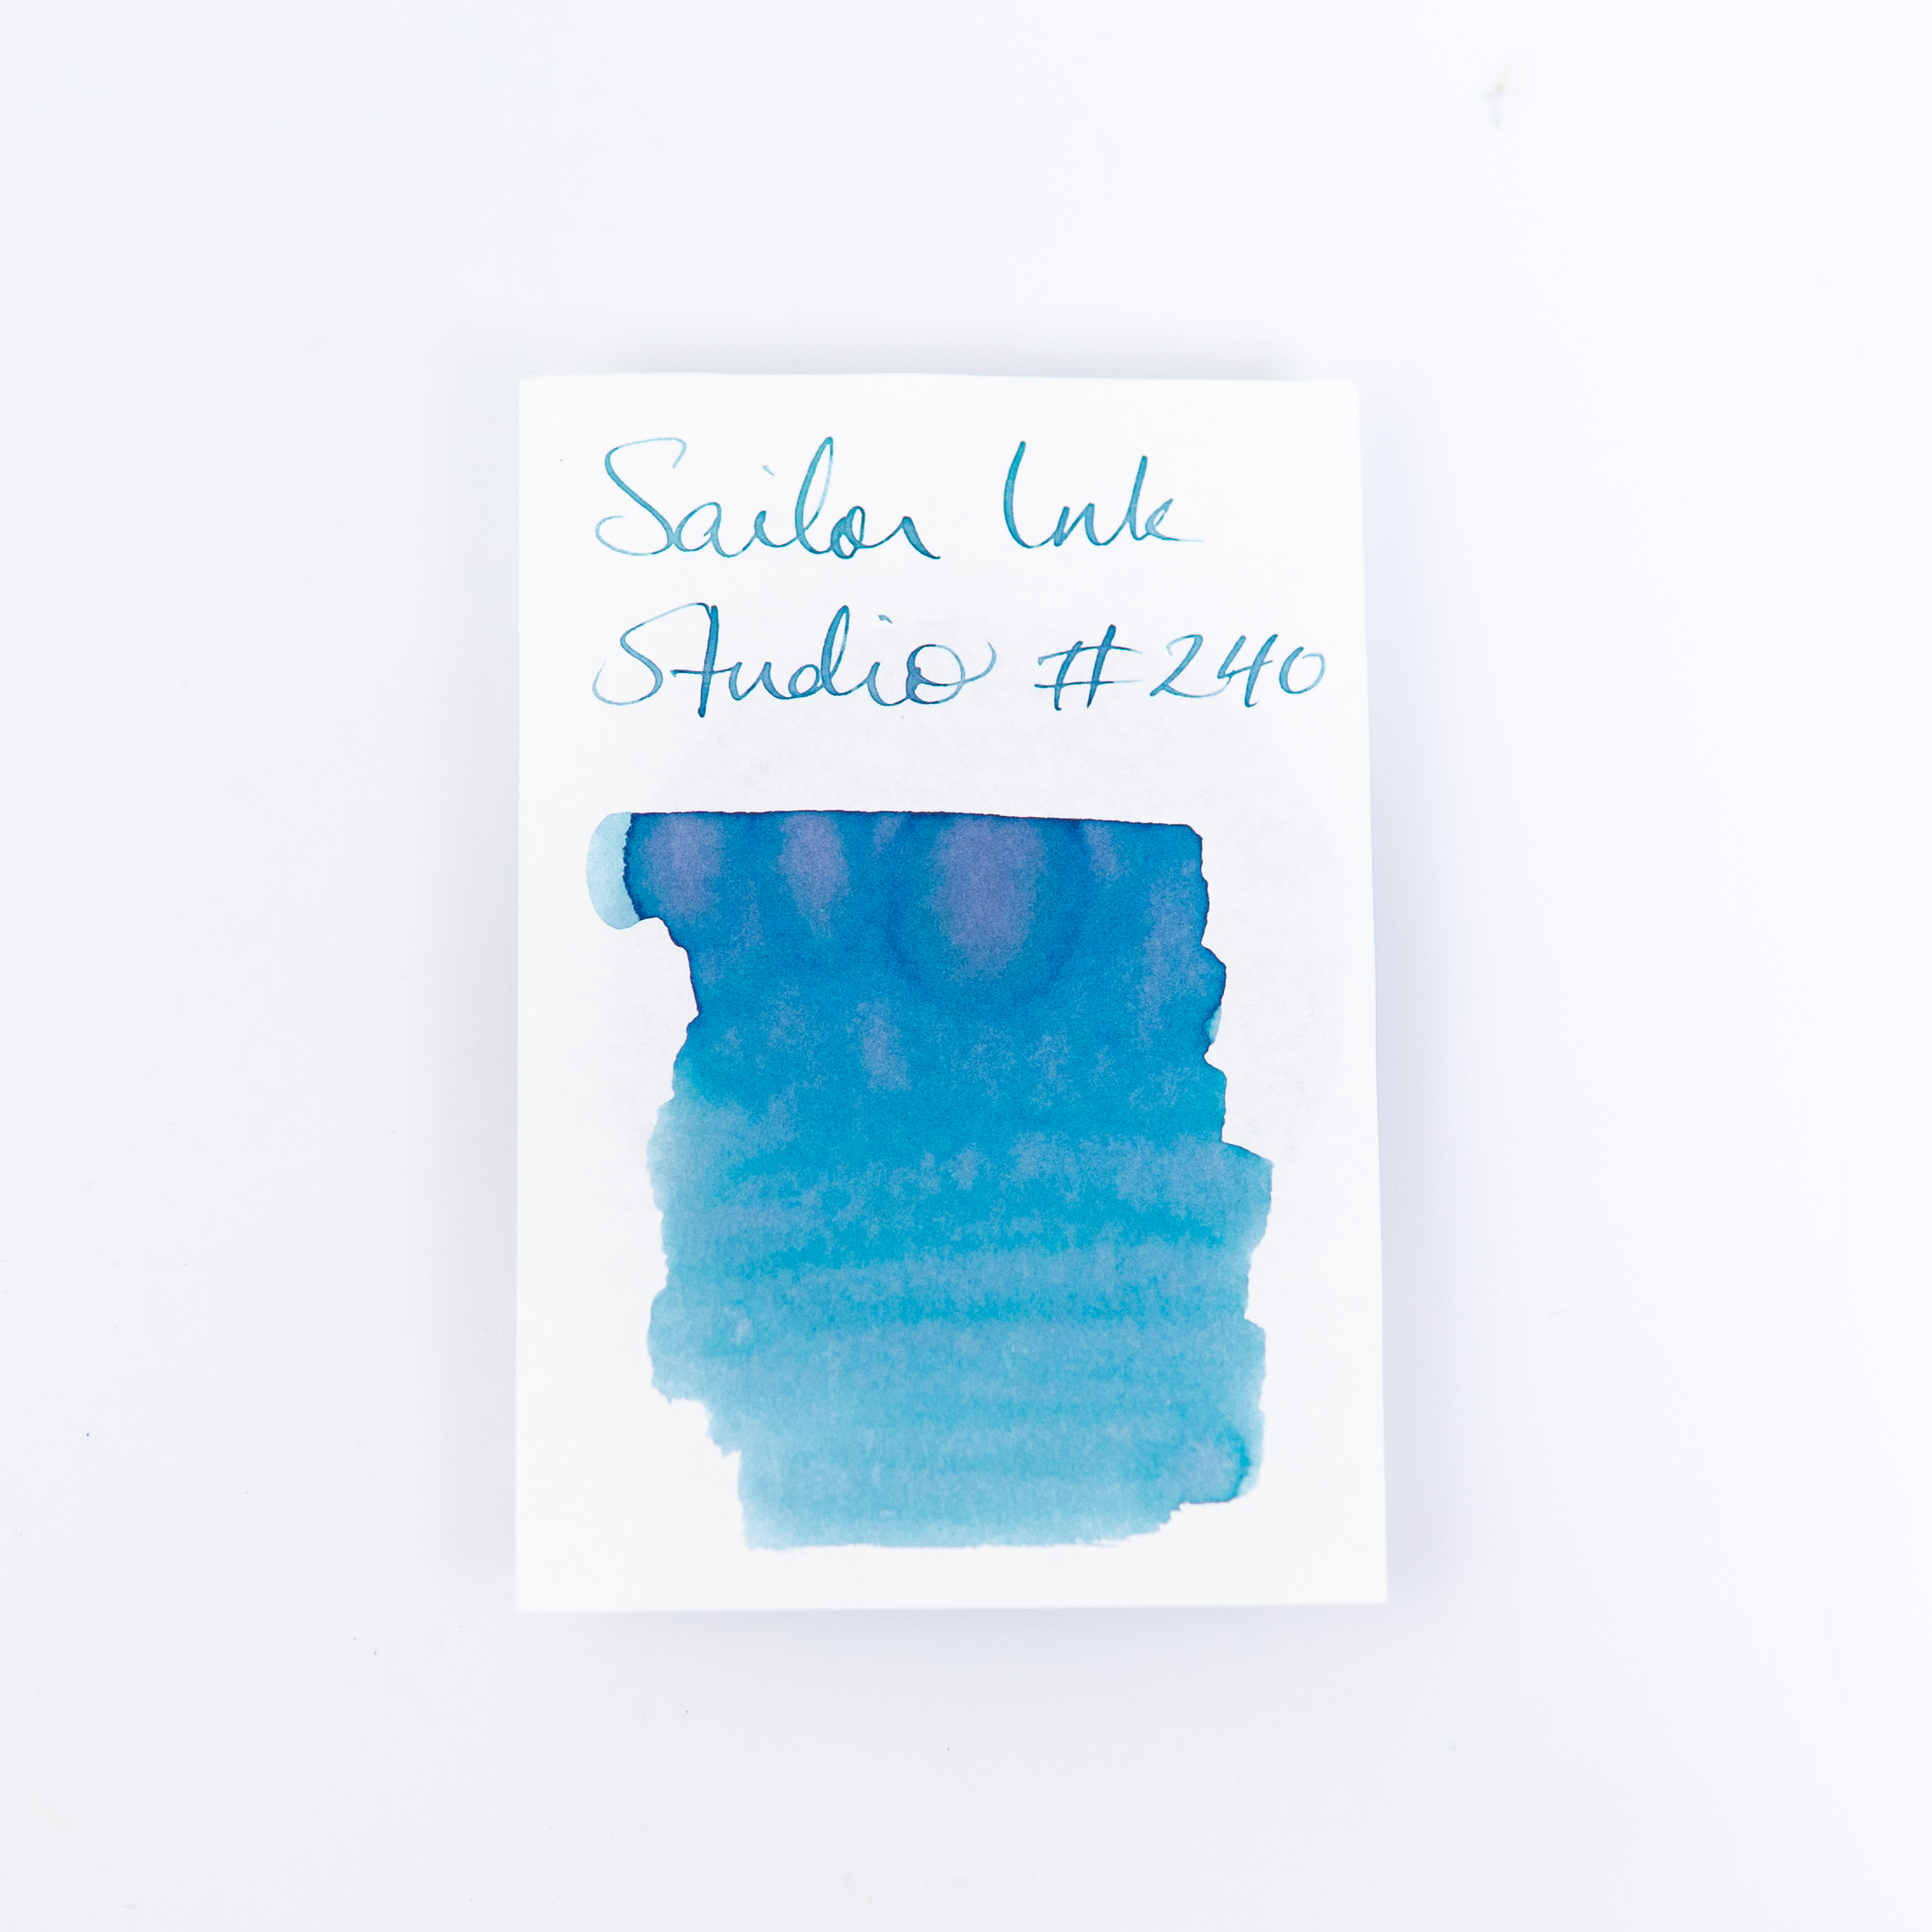 Sailor Ink
Studio #240